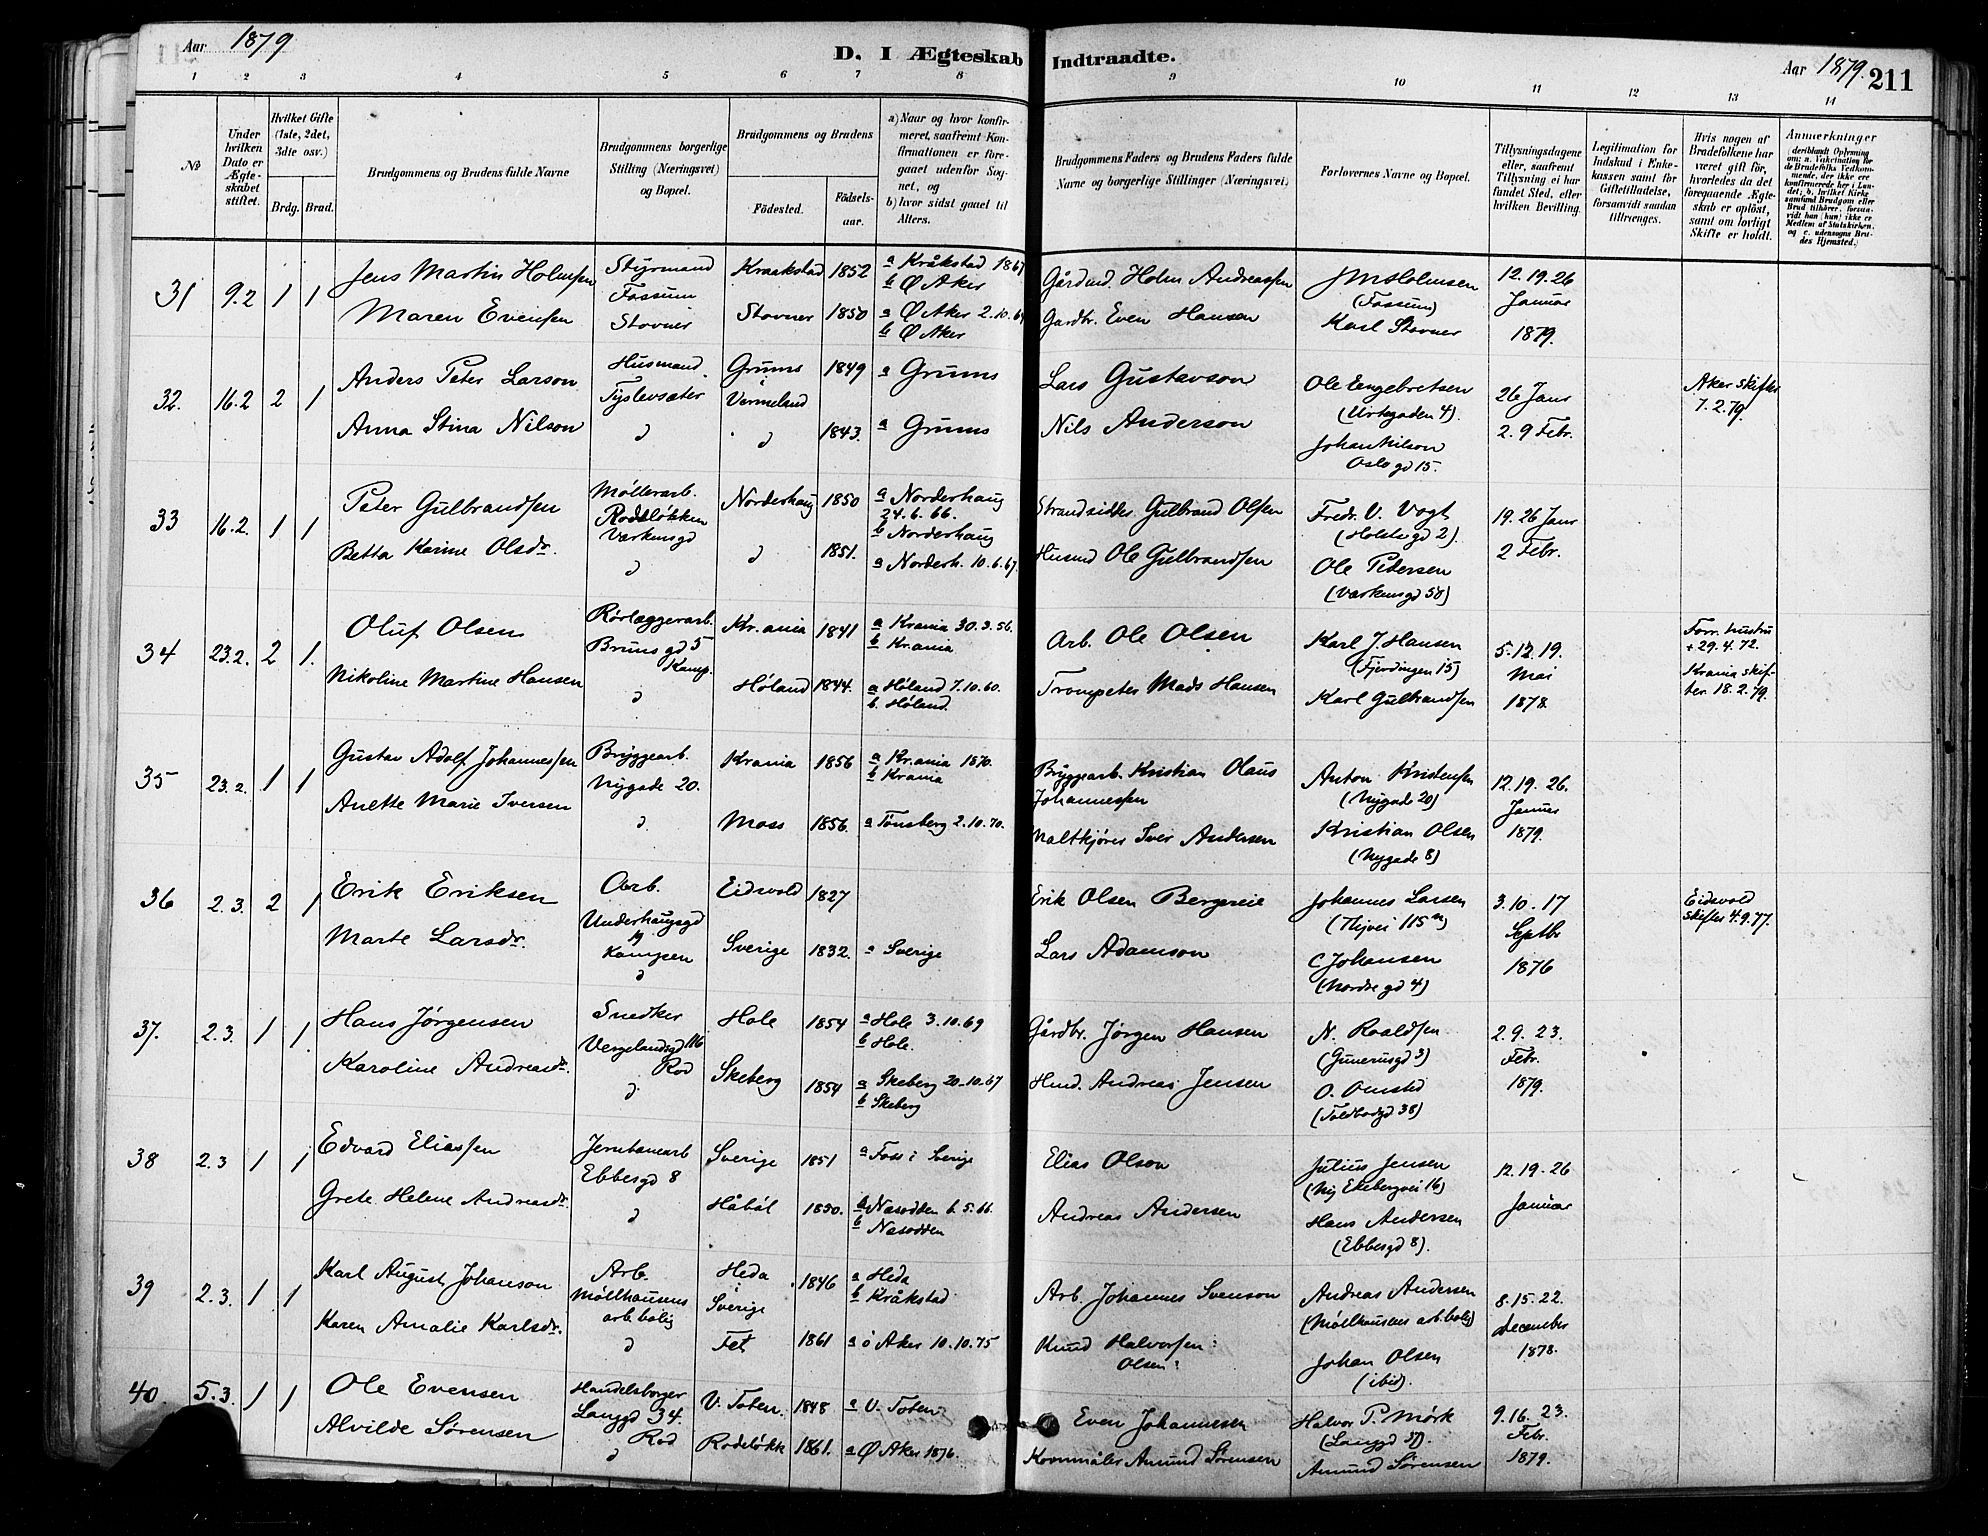 Aar 1879
D. I Ægteskab Indtraadte.
Aar 1879. 211
1 2 3 4 5 6 7 8 9 10 11 12 13 14
No
Under hvilken Dato er Ægteskabet stiftet.
Hvilket Gifte (1ste, 2det, 3die osv.)
Brdg. Brud.
Brudgommens og Brudens fulde Navne
Brudgommens borgerlige Stilling (Næringsvei) og Bopæl.
Brudgommens og Brudens
Födested. Födselsaar.
a) Naar og hvor konfirmeret, saafremt Konfirmationen er foregaaet udenfor Sognet, og
b) hvor sidst gaaet til Alters.
Brudgommens Faders og Brudens Faders fulde Navne og borgerlige Stillinger (Næringsvei)
Forlovernes Navne og Bopæl.
Tillysningsdagene eller, saafremt Tillysning ei har fundet Sted, efter hvilken Bevilling.
Legitimation for Indskud i Enkekassen samt for Giftetilladelse, forsaavidt saadan tiltrænges.
Hvis nogen af Brudefolkene har været gift för, hvorledes da det foregaaende Ægteskab er oplöst, samt om lovligt Skifte er holdt.
Anmerkninger
31 9.2 1 1 Jens Martin Holmsen Styrmand Fossum Kraakstad 1852 a Kråkstad 1867 b Ø Aker Gårdmd. Holm Andreassen J M Holmsen (Fossum) 12. 19. 26 Januar 1879.
Maren Evensen Stovner Stovner 1850 a Ø Aker 2.10.64 b Ø Aker Gardbr. Even Hansen Karl Stovner
32. 16.2 2 1 Anders Peter Larson Husmand Tyslevsæter Grums i Vermeland 1849 a Grums Lars Gustavson Ole Engebretsen (Urtegaden 4). 26 Janr 2. 9 Febr. Aker skifter 7.2.79.
Anna Stina Nilson d d 1843. a Grums Nils Anderson Johan Nilson Oslo gd 15.
33 16.2. 1 1 Peter Gulbrandsen Møllerarb. Rodeløkken Værkensgd Norderhaug 1850 a Norderhaug 24.6.66. b Norderhaug Strandsidder Gulbrand Olsen Fredr. V. Vogt (Holsts gd 2) 19. 26 Janr 2 Febr.
Betta Karine Olsdr. d d 1851. a Norderh. 10.6.67. Husmd Ole Gulbrandsen Ole Pedersen (Værkensgd 58)
34 23.2. 2 1. Oluf Olsen Rørlæggerarb. Bruns gd 5 Kamp. Kr.ania 1841 a Krania 30.3.56. b Kr.ania Arb. Ole Olsen Karl J. Hansen (Fjerdingen 15) 5.12.19. Mai 1878. Forr. hustru + 29.4.72. Krania skifter 18.2.79.
Nikoline Martine Hansen d Høland 1844. a Høland 7.10.60. b. Høland. Trompeter Mads Hansen Karl Gulbrandsen
35 23.2. 1 1 Gustav Adolf Johannessen Bryggearb. Nygade 20. Krania 1856 a Kr.ania 1870. b Krania Bryggearb. Kristian Olaus Johannessen Anton Kristensen (Nygade 20) 12. 19. 26. Januar 1879.
Anette Marie Iversen d. Moss 1856. a Tønsberg 2.10.70. Maltkjører Iver Andersen Kristian Olsen (Nygade 8)
36 2.3. 2 1 Erik Eriksen Arb. Underhaugsgd Kampen Eidsvold 1827 Erik Olsen Bergereie Johannes Larsen 3.10.17 Septbr 1876 Eidsvold skifter 4.9.77.
Marte Larsdr. d Sverige 1832. a Sverige Lars Adamson C Johansen (Nordre gd 4)
37. 2.3. 1 1. Hans Jørgensen Snedker Vergelandsgd 116 Rod Hole 1854 a Hole 3.10.69 b Hole. Gårdbr. Jørgen Hansen N. Roaldsen (Gunerusgd 3) 2. 9. 23. Febr. 1879.
Karoline Andreasdr. d Skeberg 1854 a Skeberg 20.10.67 b Skeberg Hmd. Andreas Jensen O. Onsted (Toldbodgd 38)
38 2.3 1 1 Edvard Eliassen Jernbanearb Ebbesgd 8 Sverige 1851 a Foss i Sverige Elias Olson Julius Jensen (Ny Ekebergvei 16) 12. 19. 26 Januar
Grete Helene Andreasdr. d Håbøl 1850. a Nasodden 6.5.66. b Nasodden Andreas Andersen Hans Andersen (Ebbesgd 8).
39 2.3. 1 1 Karl August Johanson Arb. Møllhausens arb.bolig Heda Sverige 1846 a Heda b Kråkstad Arb. Johannes Svenson Andreas Andersen (Møllhausens arb.bolig) 8.15.22. december 1878.
Karen Amalie Karlsdr. d Fet 1861 a ø Aker 10.10.75 Knud Halvorsen: Olsen: Johan Olsen (ibid).
40. 5.3. 1 1 Ole Evensen Handelsborger Langgd 34. Rod V. Toten. 1848 a V. Toten Even Johannesen Halvor P. Mørk 9.16. 23. Febr. 1879.
Alvilde Sørensen d Rodeløkk 1861. a Ø Aker 1876. Kornmåler Amund Sørensen Amund Sørensen